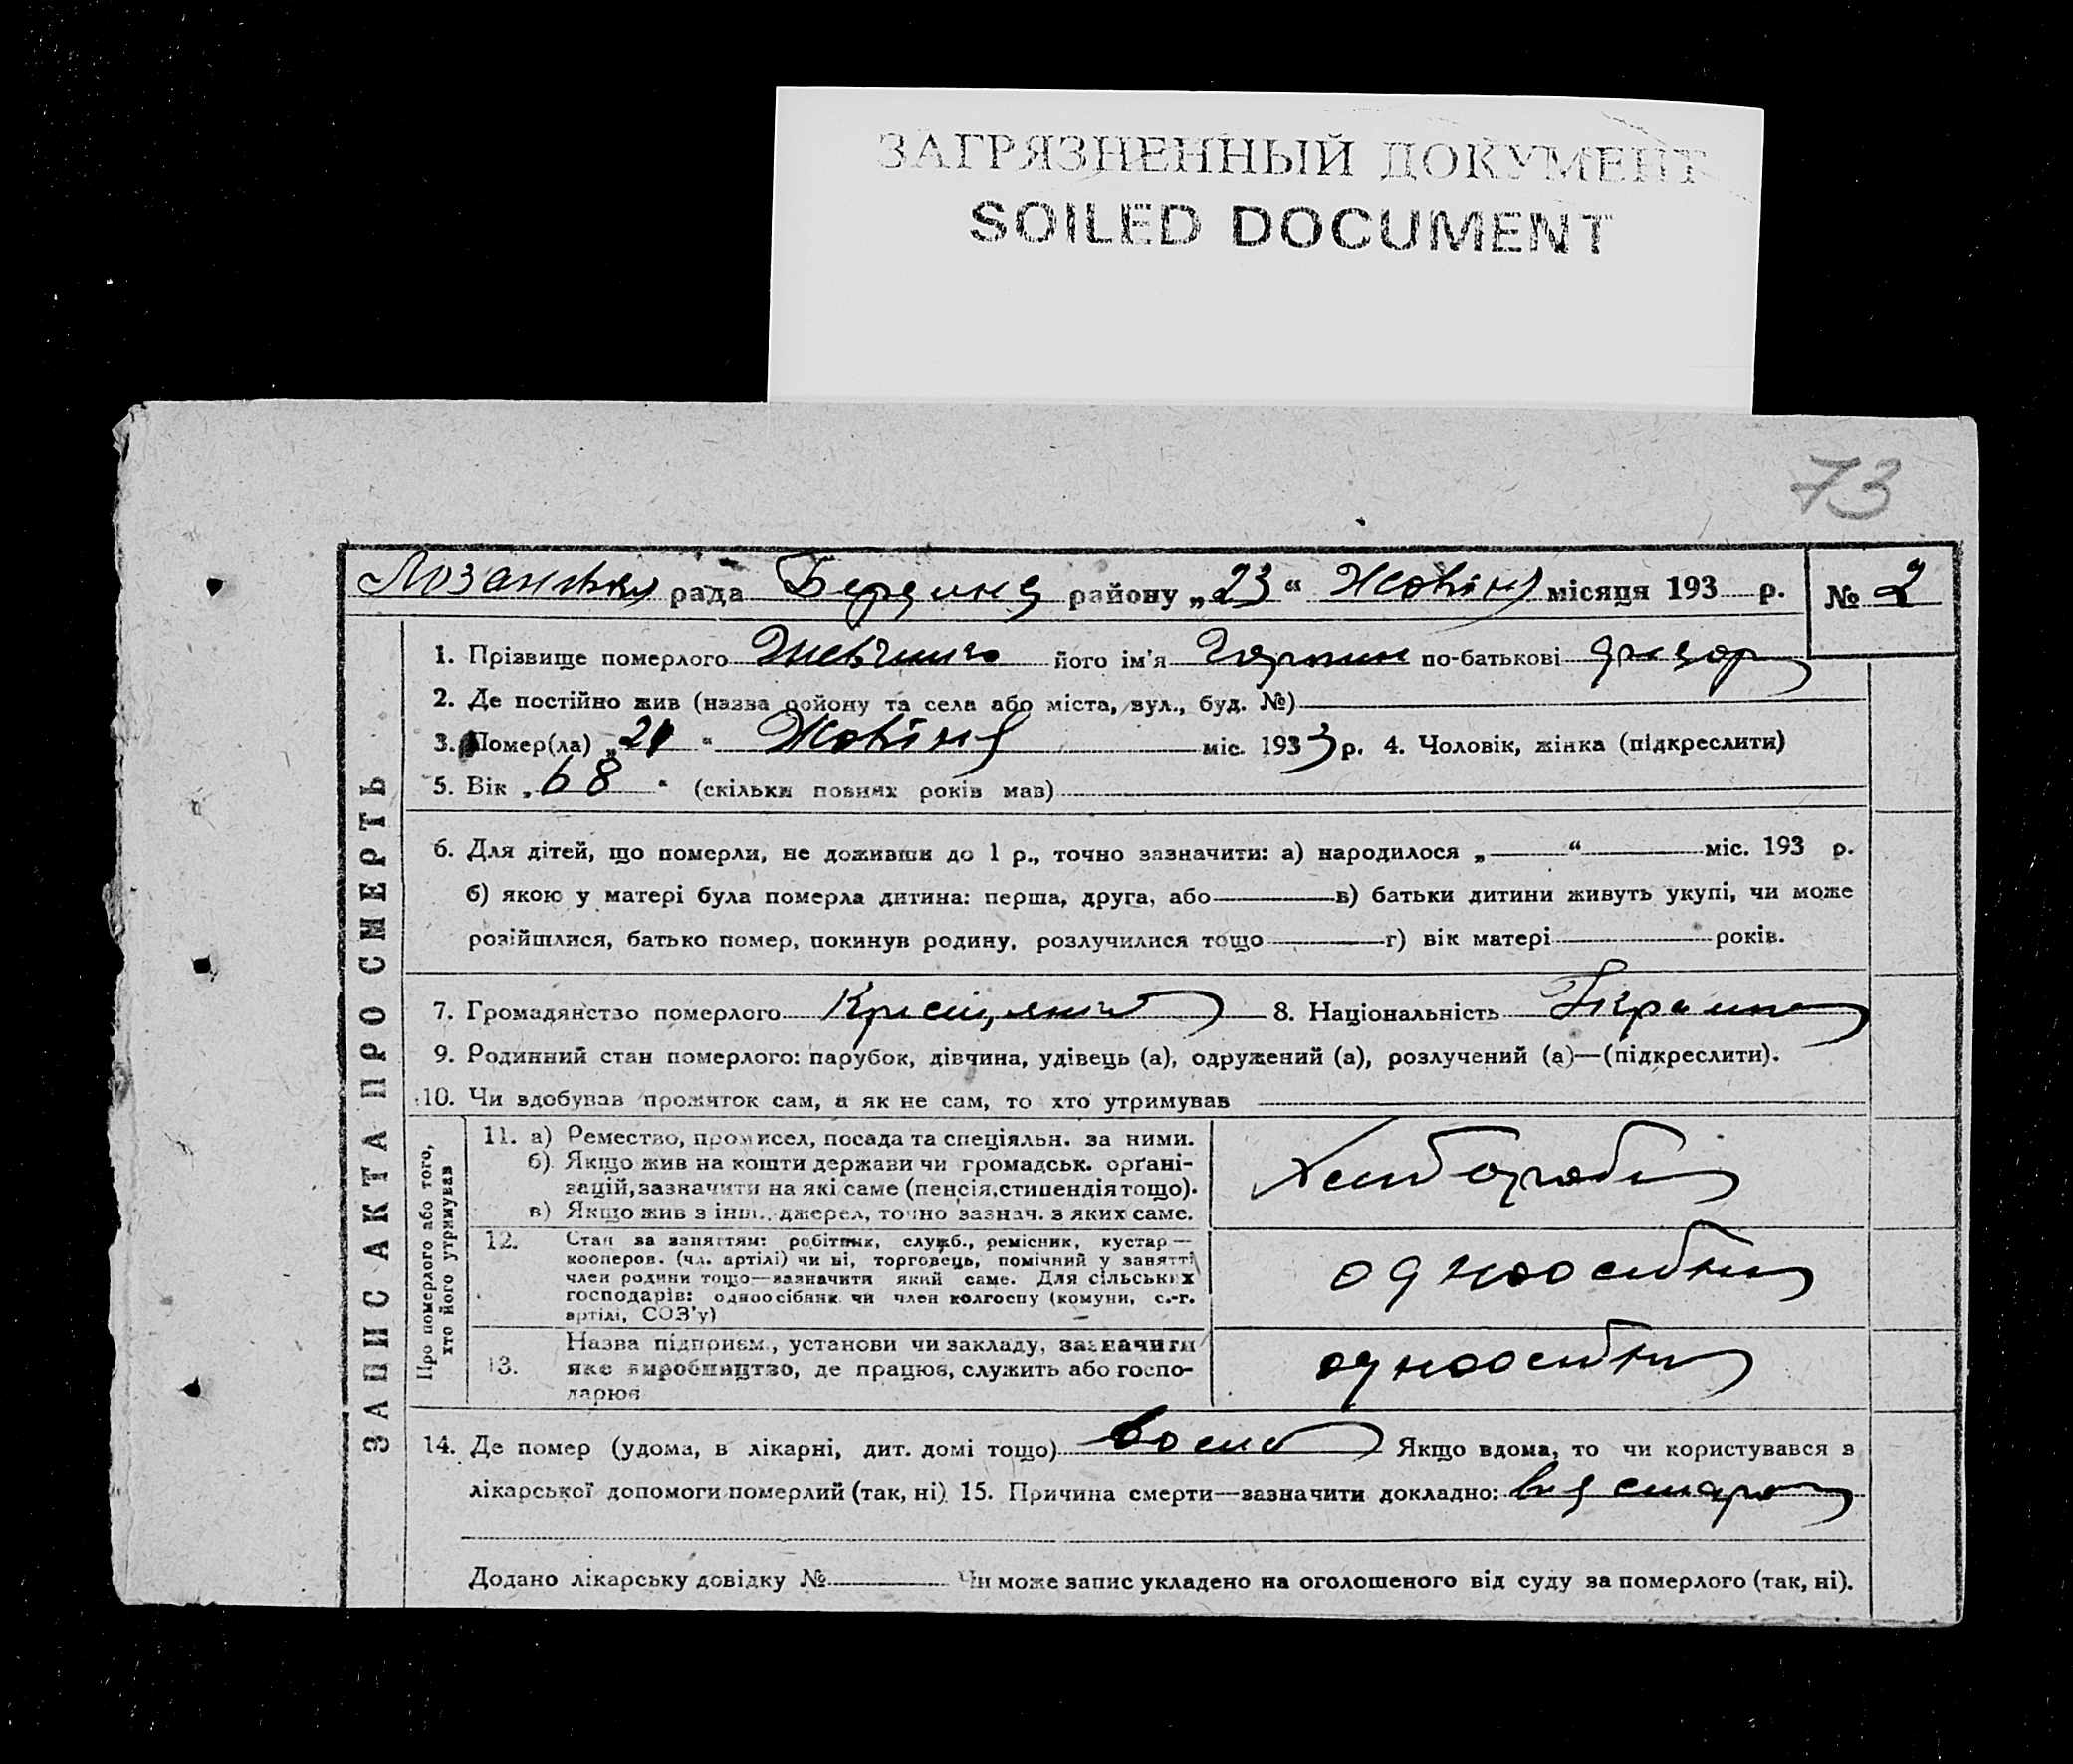 ЗАГРЯЗНЕННЫЙ ДОКУМЕНТ
SOILED DOCUMENT
73
рада району „23“ місяця 193 р. № 2
ЗАПИС АКТА ПРО СМЕРТЬ
1. Прізвище померлого його ім'я по-батькові
2. Де постійно жив (назва району та села або міста, вул., буд. №)
3. Помер(ла) „21“ міс. 1933 р. 4. Чоловік, жінка (підкреслити)
5. Вік „68“ (скільки повних років мав)
6. Для дітей, що померли, не доживши до 1 р., точно зазначити: а) народилося „ “ міс. 193 р.
б) якою у матері була померла дитина: перша, друга, або в) батьки дитини живуть укупі, чи може
розійшлися, батько помер, покинув родину, розлучилися тощо г) вік матері років.
7. Громадянство померлого 8. Національність
9. Родинний стан померлого: парубок, дівчина, удівець (а), одружений (а), розлучений (а)—(підкреслити).
10. Чи здобував прожиток сам, а як не сам, то хто утримував
Про померлого або того,
хто його утримував
11. а) Ремество, промисел, посада та спеціяльн. за ними.
б) Якщо жив на кошти держави чи громадськ. орґані-
зацій, зазначити на які саме (пенсія, стипендія тощо).
в) Якщо жив з інш. джерел, точно зазнач. з яких саме.
хлібороб
12. Стан за заняттям: робітник, служб., ремісник, кустар—
кооперов. (чл. артілі) чи ні, торговець, помічний у занятті
член родини тощо—зазначити який саме. Для сільських
господарів: одноосібник чи член колгоспу (комуни, с.-г.
артілі, СОЗ'у)
одноосібник
13. Назва підприєм., установи чи закладу, зазначити
яке виробництво, де працює, служить або госпо-
дарює
одноосібник
14. Де помер (удома, в лікарні, дит. домі тощо) Якщо вдома, то чи користувався з
лікарської допомоги померлий (так, ні) 15. Причина смерти—зазначити докладно: від
Додано лікарську довідку № Чи може запис укладено на оголошеного від суду за померлого (так, ні).